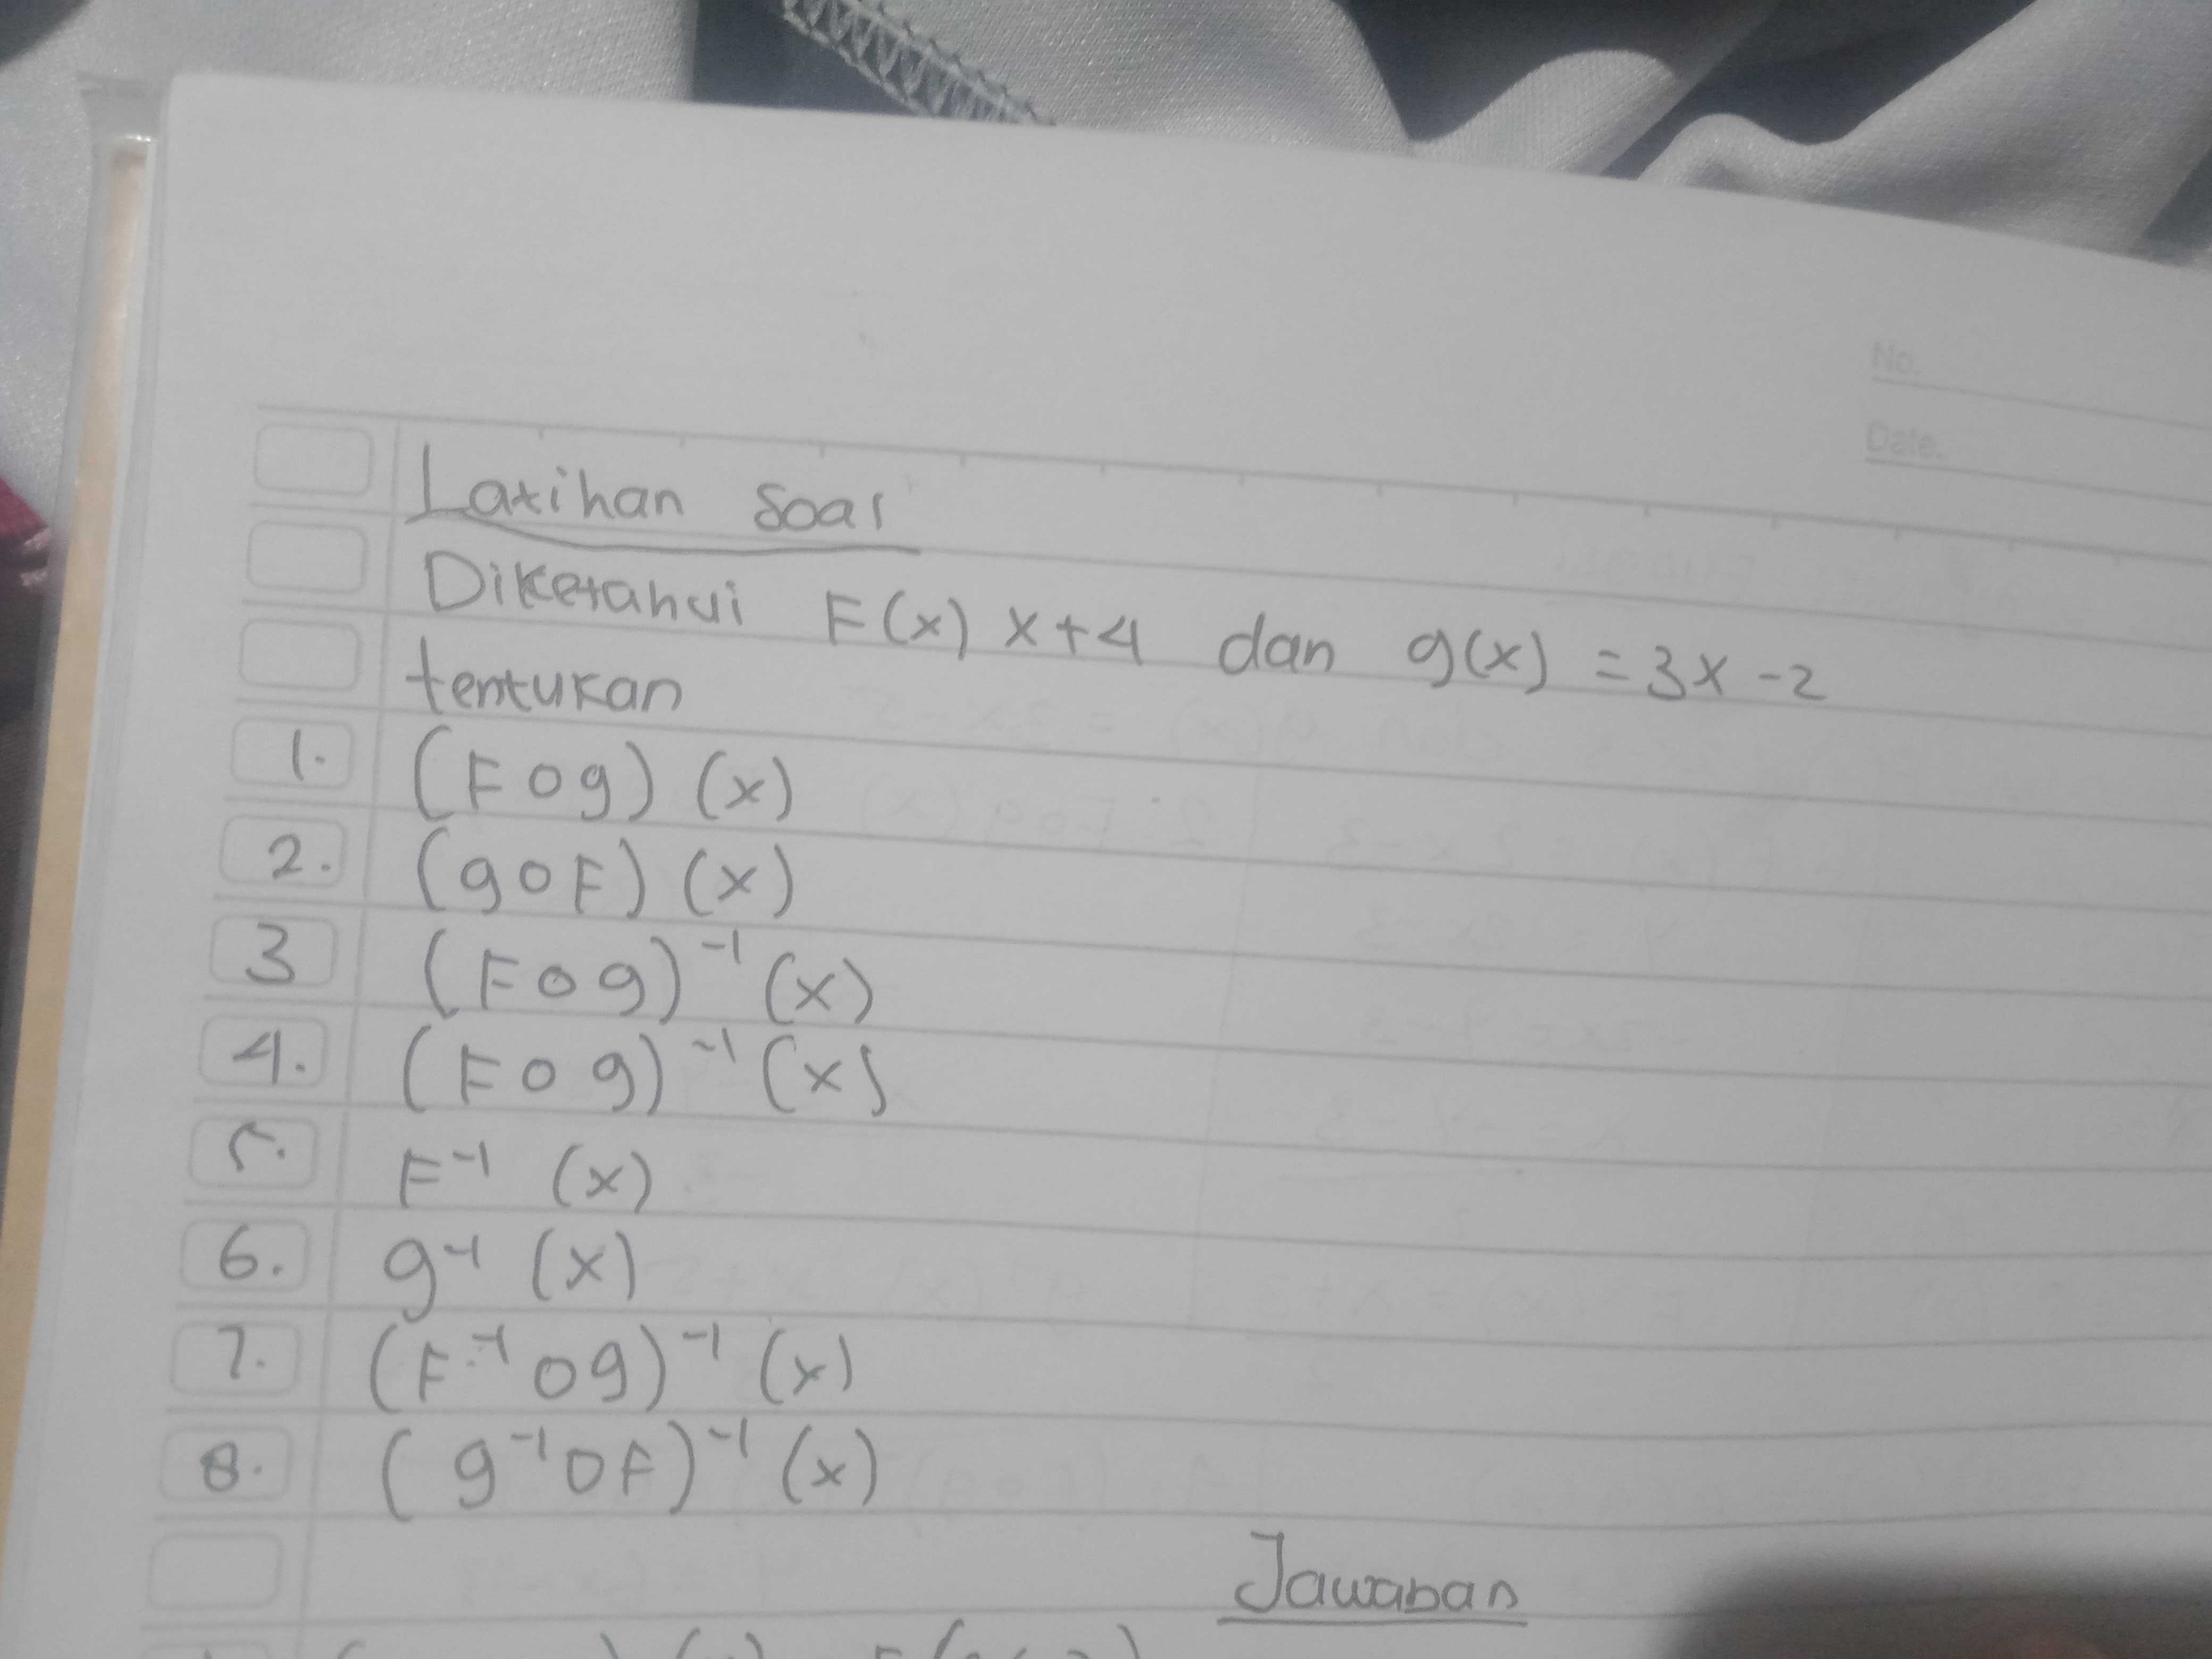 No.
Date.
Latihan soal
Diketahui F(x) x+4 dan g(x) = 3x-2
tentukan
1. (Fog) (x)
2. (goF) (x)
3 (Fog)⁻¹ (x)
4. (Fog)⁻¹ (x)
5. F⁻¹ (x)
6. g⁻¹ (x)
7. (F⁻¹og)⁻¹ (x)
8. (g⁻¹oF)⁻¹ (x)
Jawaban